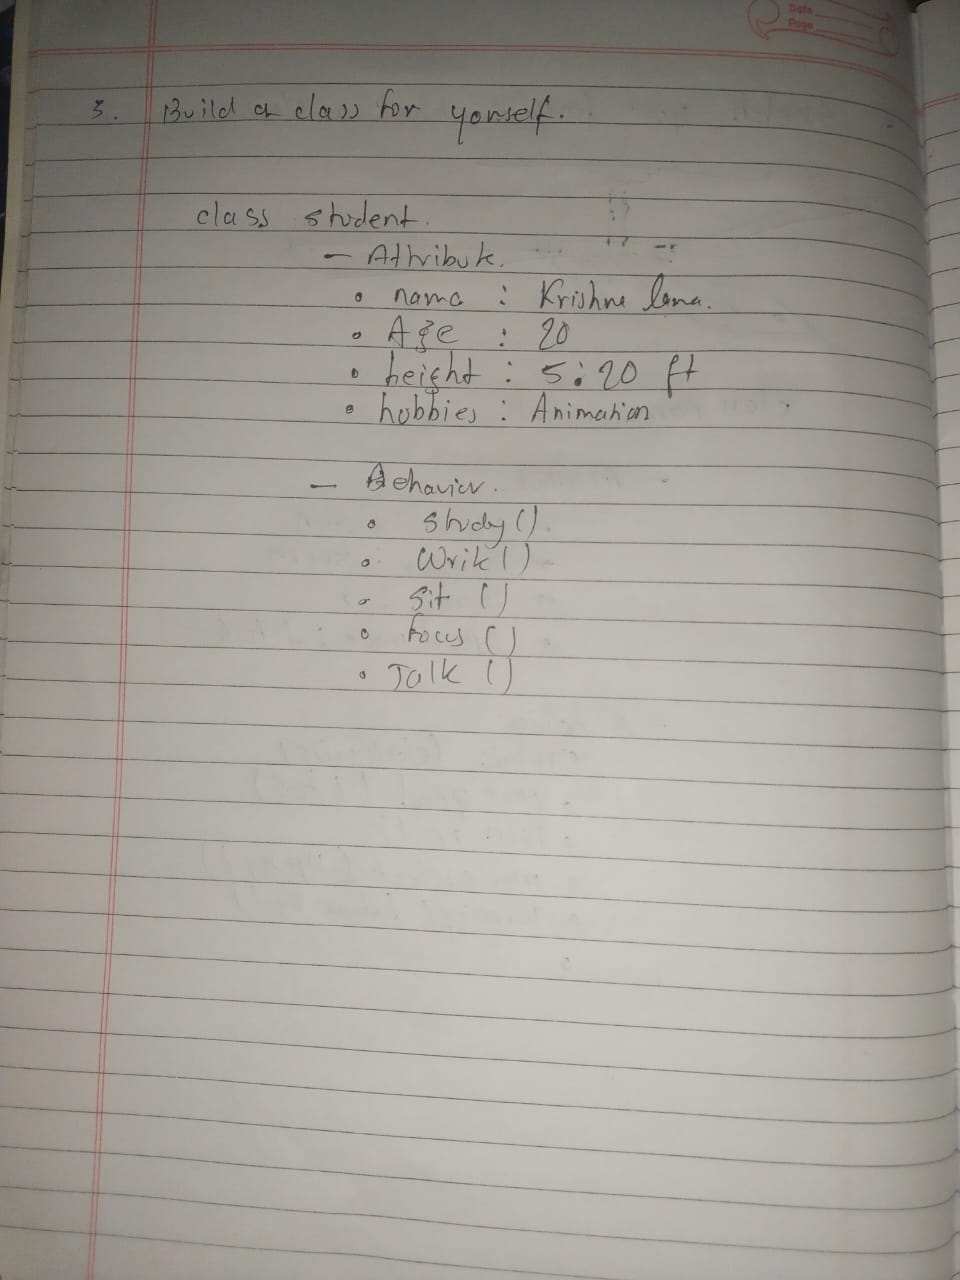 Date
Page
3. Build a class for yourself.
class student.
- Attribute.
• name : Krishna lama.
• Age : 20
• height : 5:20 ft
• hobbies : Animation
- Behavior.
• Study ().
• Write ()
• Sit ()
• Focus ()
• Talk ()